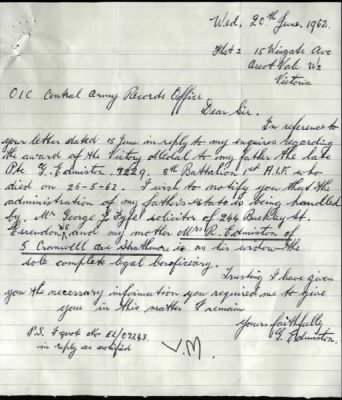 Wed, 20th June, 1962.
Flat 2 15 Wingate Ave
Ascot Vale W2
Victoria
OIC Central Army Records Office
Dear Sir.
In reference to
your letter dated 15 June in reply to my enquires regarding
the award of the Victory Medal to my father the late
Pte G. Edmiston. 7229. 8th Battalion 1st A.I.F. who
died on 26-5-62. I wish to notify you that the
administration of my father's estate is being handled
by Mr George solicitor of 244 Buckley St.
Essendon W5 and my mother Mrs R. Edmiston of
5 Cromwell Ave Strathmore is as his widow the
sole complete legal beneficery.
Trusting I have given
you the necessary information you required me to give
you in this matter I remain
Yours faithfully
G. Edmiston.
P.S. I quote
in reply as notified
V.M